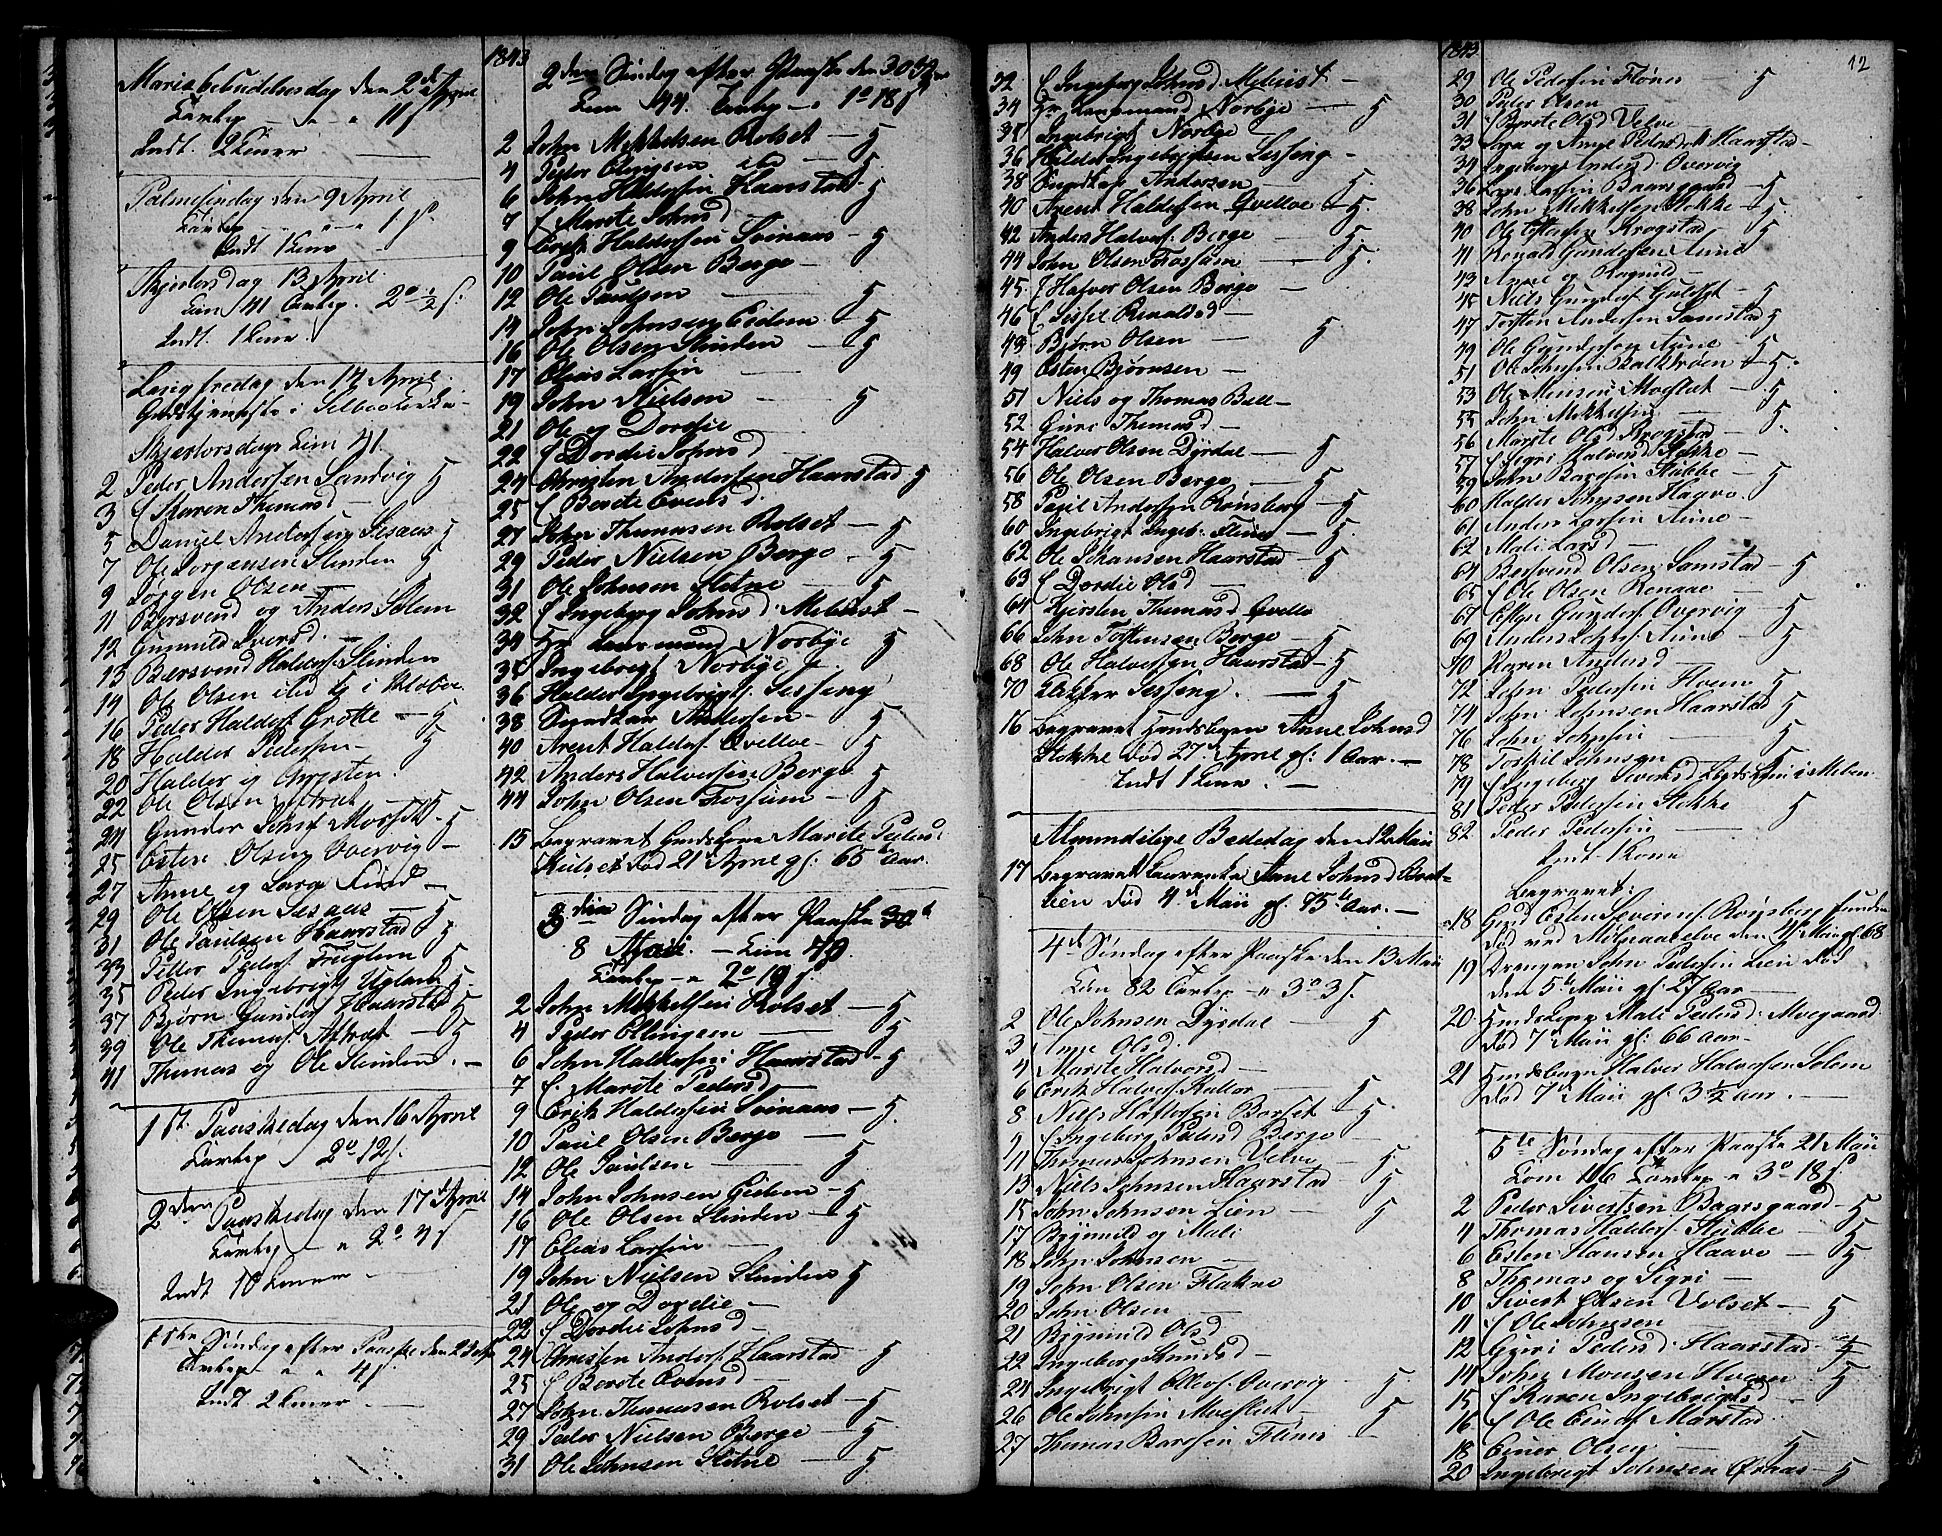 1843
Mariæ bebudelsesdag den 2d April
Tavlep " " 11 s
Indt. 2 Koner
Palmesøndag den 9 April
Tavlep " " 1 s.
Indt 1 Kone
Skjertorsdag 13 April
Kom 41 Tavlep. 2o ½ s.
Indt. 1 Kone.
Langfredag den 14 April.
Gudstjeneste i Selboekirke
Skjertorsdags Kom 41.
2 Peder Andersen Sandvig 5
3 Karen Thomasd
5 Daniel Andersen Sesaas 5
7 Ole Jorgensen Slinden 5
9 Jørgen Olsen
11 Bersvend og Anders Solem
12 Gunnild Iversd.
13 Bersvend Haldors. Slinden
14 Ole Olsen
16 Peder Haldors. Grøtte 5
18 Haldor Pedersen 5
20 Haldor og
22 Ole Olsen Aftret
24 Gunder Johns. Moslet 5
25 Esten Olsen Overvig
27 Anne og Lars
29 Ole Olsen Sesaas 5
31 Ole Paulsen Haarstad 5
33 Petter Peders. Fuglem 5
35 Peder Ingebrigts Uglem 5.
37 Bjørn Gunders. Haarstad 5
39 Ole Thomas. Aftret 5
41 Thomas og Ole Slinden.
1ste Paaskedag den 16 April
Tavlep 2o 12 s.
2den Paaskedag den 17d April
Tavlep " 2o 4 s
Indt 10 Koner
1ste Søndag efter Paaske den 23 Apr
Tavlep " " 4 s
Indt 2 Koner
2den Søndag efter Paaske den 30
Kom 44. Tavlep " 1o 18 s
2 John Mikkelsen Rolset 5
4 Peder Ellingsen
6 John Haldorsen Haarstad 5
7 Marite Johnsd
9 Erik Haldorsen Svinaas 5
10 Paul Olsen Berge
12 Ole Paulsen 5
14 John Johnsen Eidem 5
16 Ole Olsen Slinden 5
17 Elias Larsen
19 John Nielsen 5
21 Ole og Dordie
22 Dordie Johnsd
24 Christen Andersen Haarstad 5
25 Berete Evensd.
27 John Thomasen Rolset 5
29 Peder Nielsen Berge 5
31 Ole Johnsen Sletne 5
32 Ingeborg Johnsd. Meluist
34 Hr Lensmand Norbye 5
35 Ingebrigt Norbye
36 Haldor Ingebrigts. Sesseng
38 Sundkar Andersen 5
40 Arent Haldors. Qvelloe 5
42 Anders Halvorsen Berge 5
44 John Olsen Fossum 5
15 Begravet Huuskone Marite Peders.
død 21d April gl: 65 Aar.
3die Søndag efter Paaske 30t
8 Mai. Kom 70
Tavlep " 2o 19 s
2 John Mikkelsen Rolset 5
4 Peder Ellingsen 5
6 John Haldorsen Haarstad 5
7 Marite Pedersd
9 Erik Haldorsen Svinaas 5
10 Paul Olsen Berge
12 Ole Paulsen 5
14 John Johnsen Eidem 5
16 Ole Olsen Slinden 5
17 Elias Larsen
19 John Nielsen Slinden 5
21 Ole og Dordie
22 Dordie Johnsd
24 Christen Anders. Haarstad 5
25 Berete Evensd
27 John Thomasen Rolset 5
29 Peder Nielsen Berge 5
31 Ole Johnsen Sletne 5
32 Ingeborg Johnsd Meluist
34 Hr Lensmand Norbye 5
35 Ingebrigt Norbye
36 Haldor Ingebrigtsen Sesseng
38 Sundkar Andersen 5.
40 Arent Haldorsen Qvelloe 5.
42 Anders Halvors. Berge 5.
44 John Olsen Fossum 5.
45 Halvor Olsen Berge
46 Sessil Renaldsd
48 Bjørn Olsen 5
49 Esten Bjørnsen
51 Niels og Thomas Ball
52 Guro Thomasd
54 Halvor Olsen Dyrdal 5
56 Ole Olsen Berge 5
58 Paul Andersen Rønsberg 5
60 Ingebrigt Ingeb. Flønes 5.
62 Ole Johansen Haarstad 5
63 Dordie Olsd
64 Kjersten Thomasd Qvello
66 John Torstensen Berge 5
68 Ole Halvorsen Haarstad 5
70 Klokker Sesseng. 5
16 Begravet Huusbarn Anne Johnsd
Stokke død 27d April gl: 1 Aar.
Indt 1 Kone.
Almindelige Bededag den 12 Mai
17 Begravet Anne Johnsd
død 4d Mai gl. 75 Aar.
4d Søndag efter Paaske den 13 Mai
Kom 82 Tavlep " 3o 3 s.
2 Ole Johnsen Dyrdal 5
3 Anne Olsd.
4 Marite Halvorsd
6 Erik Halvors. Kallar 5
8 Niels Haldorsen Borset 5
9 Ingeborg Pedersd Berge
11 Thomas Johnsen Velve 5
13 Niels Johnsen Haarstad 5
15 John Johnsen Lien 5
17 Brynnild og Mali
18 John Johnsen
19 John Olsen Flakne
20 John Olsen
21 Brynnild Olsd
22 Ingeborg
24 Ingebrigt Ellevs. Overvig 5
26 Ole Johnsen Moeslet 5
27 Thomas Bardsen Flønes
1843
12
29 Ole Pedersen Flønes 5
30 Peder Olsen
31 Berete Olsd Velve
33 og Anne Pedersd. Haarstad
34 Ingeborg Andersd Overvig
36 Lars Larsen Baarsgaard 5
38 John Mikkelsen Stokke 5
40 Ole Estensen Krogstad 5
41 Renald Gundersen Aune
43 Anne og Ragnild
45 Niels Gunders. Guldset 5
47 Torsten Andersen Samstad 5
49 Ole Gundersen Aune 5
51 Ole Johnsen Balkbroen 5.
53 Ole Monsen Moeslet 5
55 John Mikkelsen 5
56 Marite Olsd Krogstad
57 Sigri Halvorsd Stokke
59 John Bardsen Stubbe 5
60 Haldor Johnsen Haave
61 Anders Larsen Aune
62 Mali Larsd
64 Bersvend Olsen Samstad 5
65 Ole Olsen Renaae
67 Esten Gunders. Overvig 5
69 Anders Johns. Aune 5
70 Karen Andersd
72 John Pedersen Hoem 5
74 John Johnsen Haarstad 5
76 John Johnsen 5
78 Torkil Johnsen 5
79 Ingeborg Siversd
81 Peder Pedersen Stokke 5
82 Peder Pedersen
Indt 1 Kone
Begravet:
18 Esten Siverens. Rønsberg funden
død ved Mølnaaelve den 4 Mai gl 68
19 Drengen John Pedersen Lien død
den 5te Mai gl: 27 Aar
20 Huuskone Mali Pedersd. Moegaard
død 7d Mai gl: 66 aar
21 Huusbarn Halvor Halvorsen Solem
død 7d Mai gl. 3½ Aar.
5te Søndag efter Paaske 21 Mai
Kom 116 Tavlep " 3o 18 s
2 Peder Sivertsen Baarsgaard 5
4 Thomas Haldors. Stubbe 5
6 Esten Hansen Haave 5
8 Thomas og Sigri
10 Sivert Olsen Volset 5
11 Ole Johnsen
12 Guri Pedersd. Haarstad
14 John Monsen Hoem 5
15 Karen Ingebrigtsd
16 Ole Marstad
18 Einer Olsen 5
20 Ingebrigt Johnsen Ossaas 5